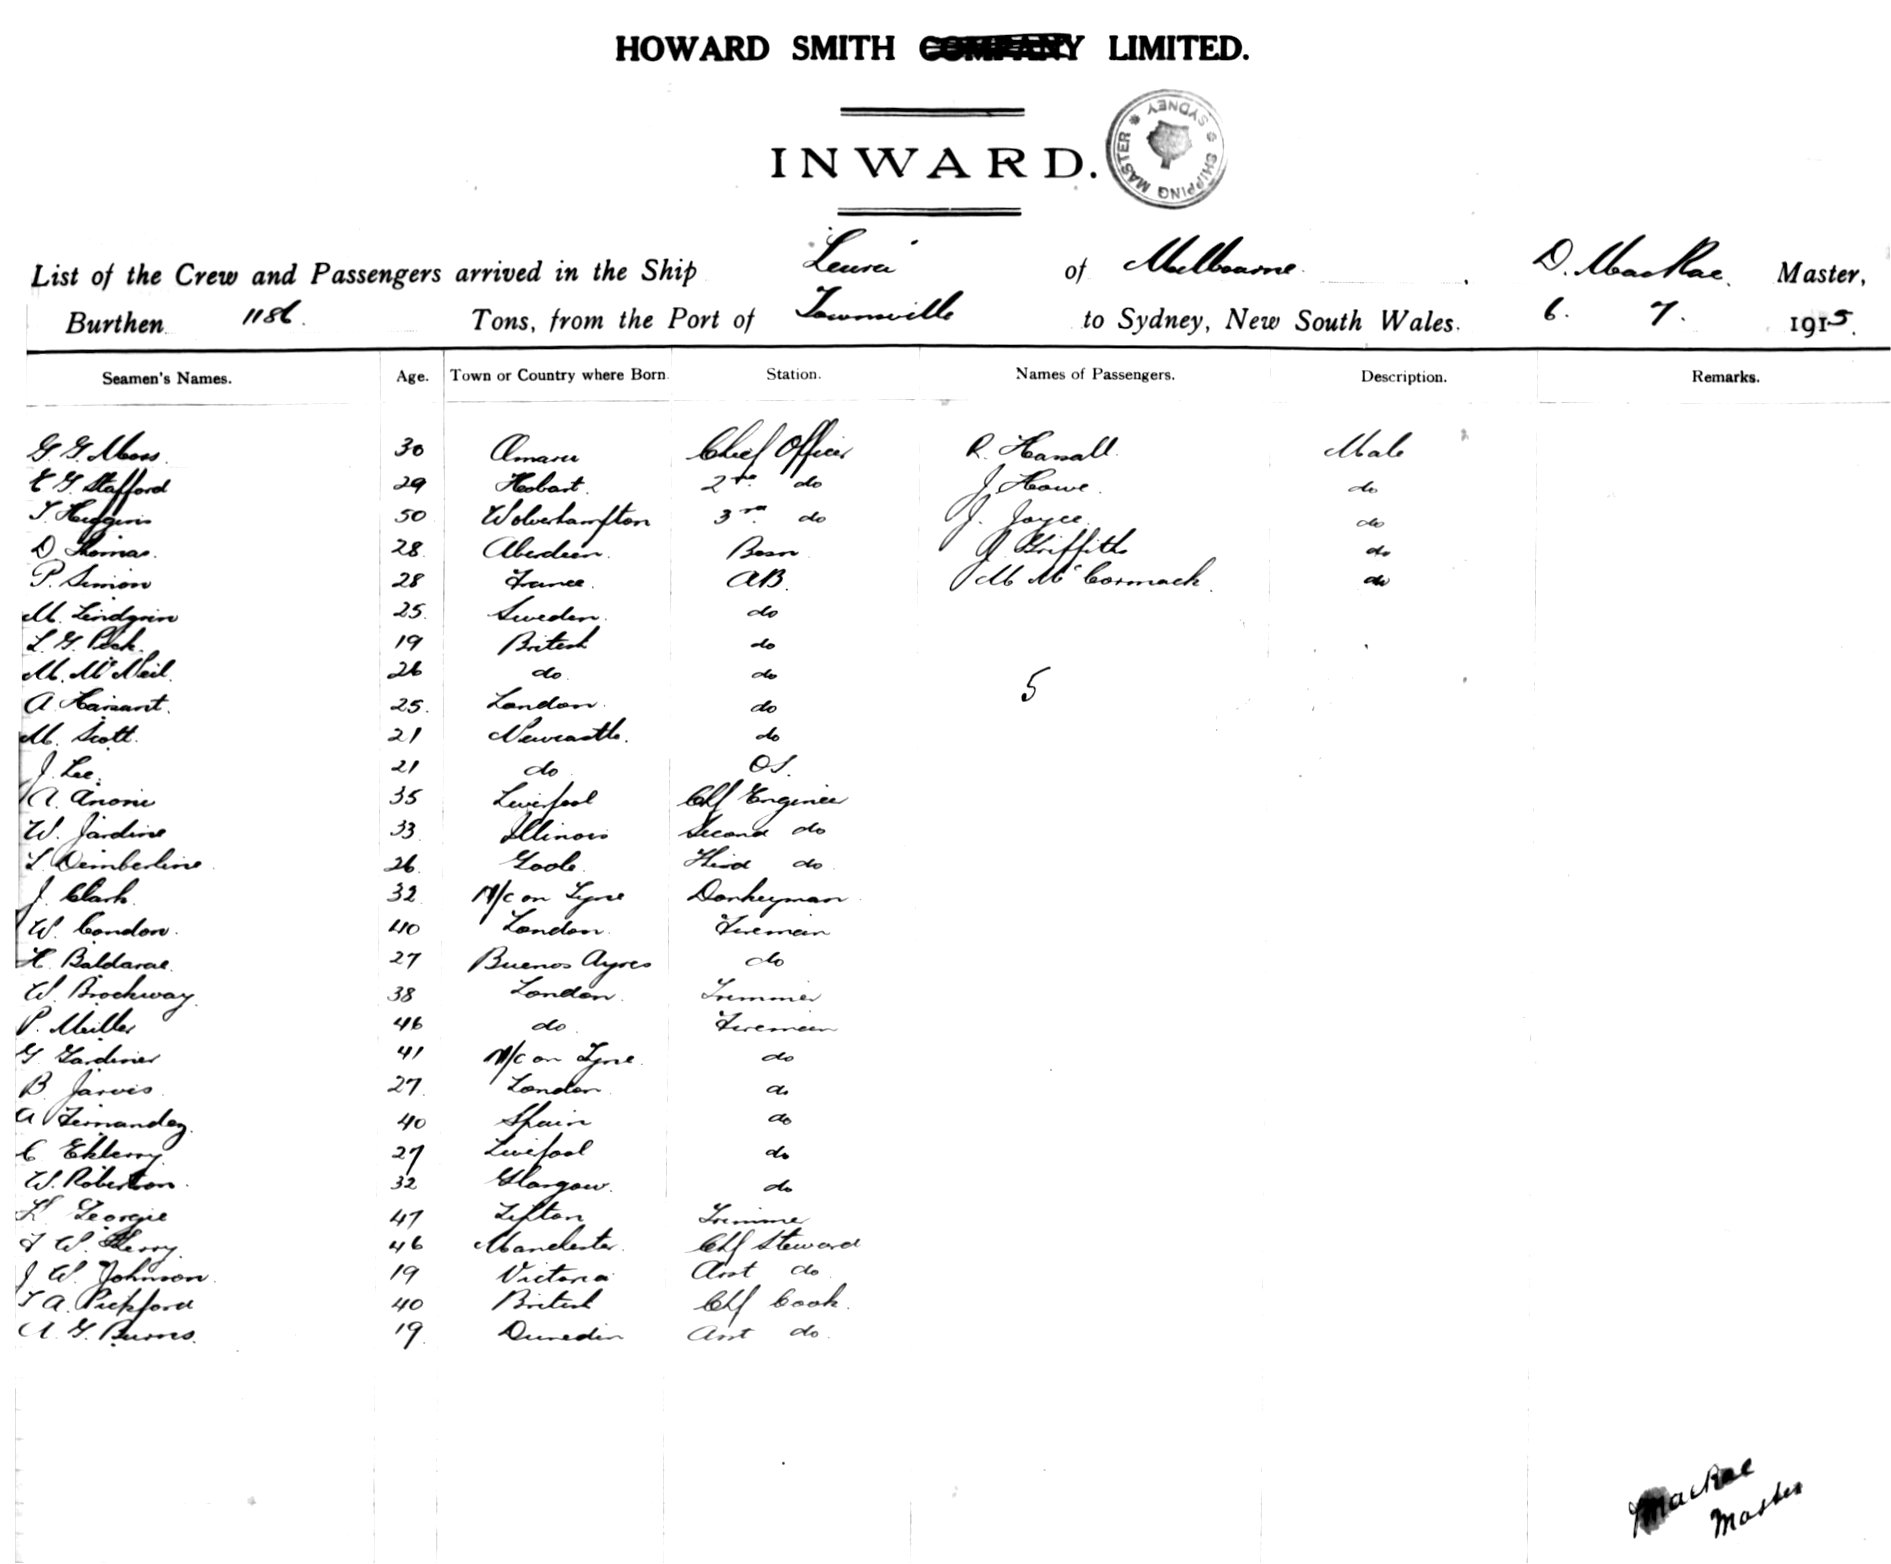 HOWARD SMITH COMPANY LIMITED.
INWARD.
SHIPPING MASTER * SYDNEY *
List of the Crew and Passengers arrived in the Ship Leura of Melbourne, D. MacRae Master,
Burthen 1186 Tons, from the Port of Townsville to Sydney, New South Wales. 6. 7. 1915.
Seamen's Names. Age. Town or Country where Born Station. Names of Passengers. Description. Remarks.
G. G. Moss 30 Omaru Chief Officer R. Hassall Male
E G. Stafford 29 Hobart. 2nd do J Howe. do
T. Higgins 50 Wolverhampton 3rd do J. Joyce do
D Thomas. 28 Aberdeen. Bosn Griffiths do
P. Simon 28 France. AB. M McCormack. do
M. Lindgrin 25 Sweden. do
L. G. Peck. 19 British do
M. McNeil. 26 do do 5
A 25. London. do
M. Scott. 21 Newcastle. do
J. Lee. 21 do OS.
A. Anone 35 Liverpool Chf Engineer
W. Jardine 33 Illinois Second do
L. Dimberline 26 Goole. Third do
J. Clark 32 N/c on Tyne Donkeyman
W. Condon. 40 London. Fireman
H. Baldarae. 27 Buenos Ayres do
W. Brockway. 38 London. Trimmer
P. Miller 46 do Fireman
G. Gardiner 41 N/c on Tyne. do
B. Jarvis 27. London do
A Fernandez. 40 Spain do
C Ekberry. 27 Liverpool do
W. Robertson. 32 Glasgow. do
Georgie 47 Trimmer
W. Sherry. 46 Manchester. Chf Steward
J W. Johnson. 19 Victoria Asst do
T A. Pickford 40 British Chf Cook.
A. G. Burns. 19. Dunedin Asst do.
MacRae
Master